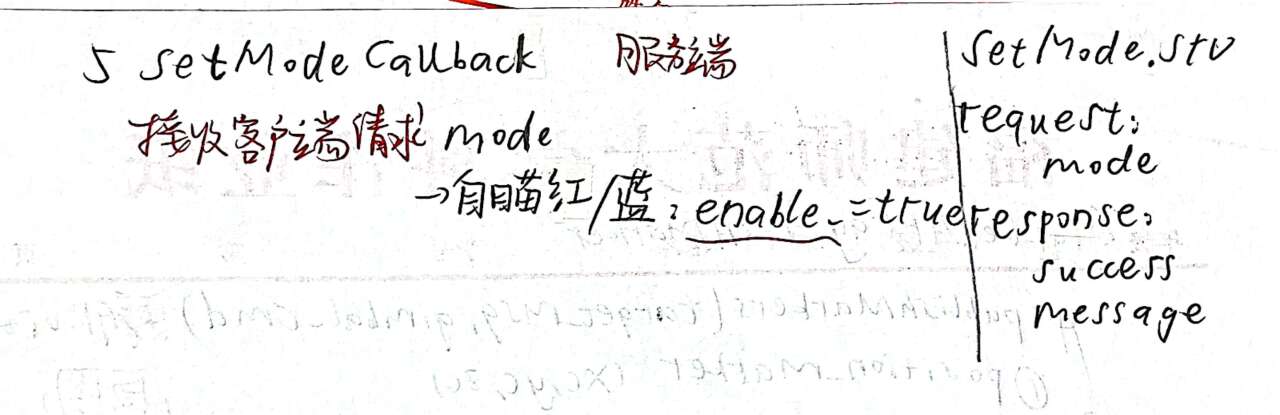 5 setMode Callback 服务端
接收客户端请求 mode
→自瞄红/蓝：enable_=true
setMode.srv
request:
mode
response:
success
message